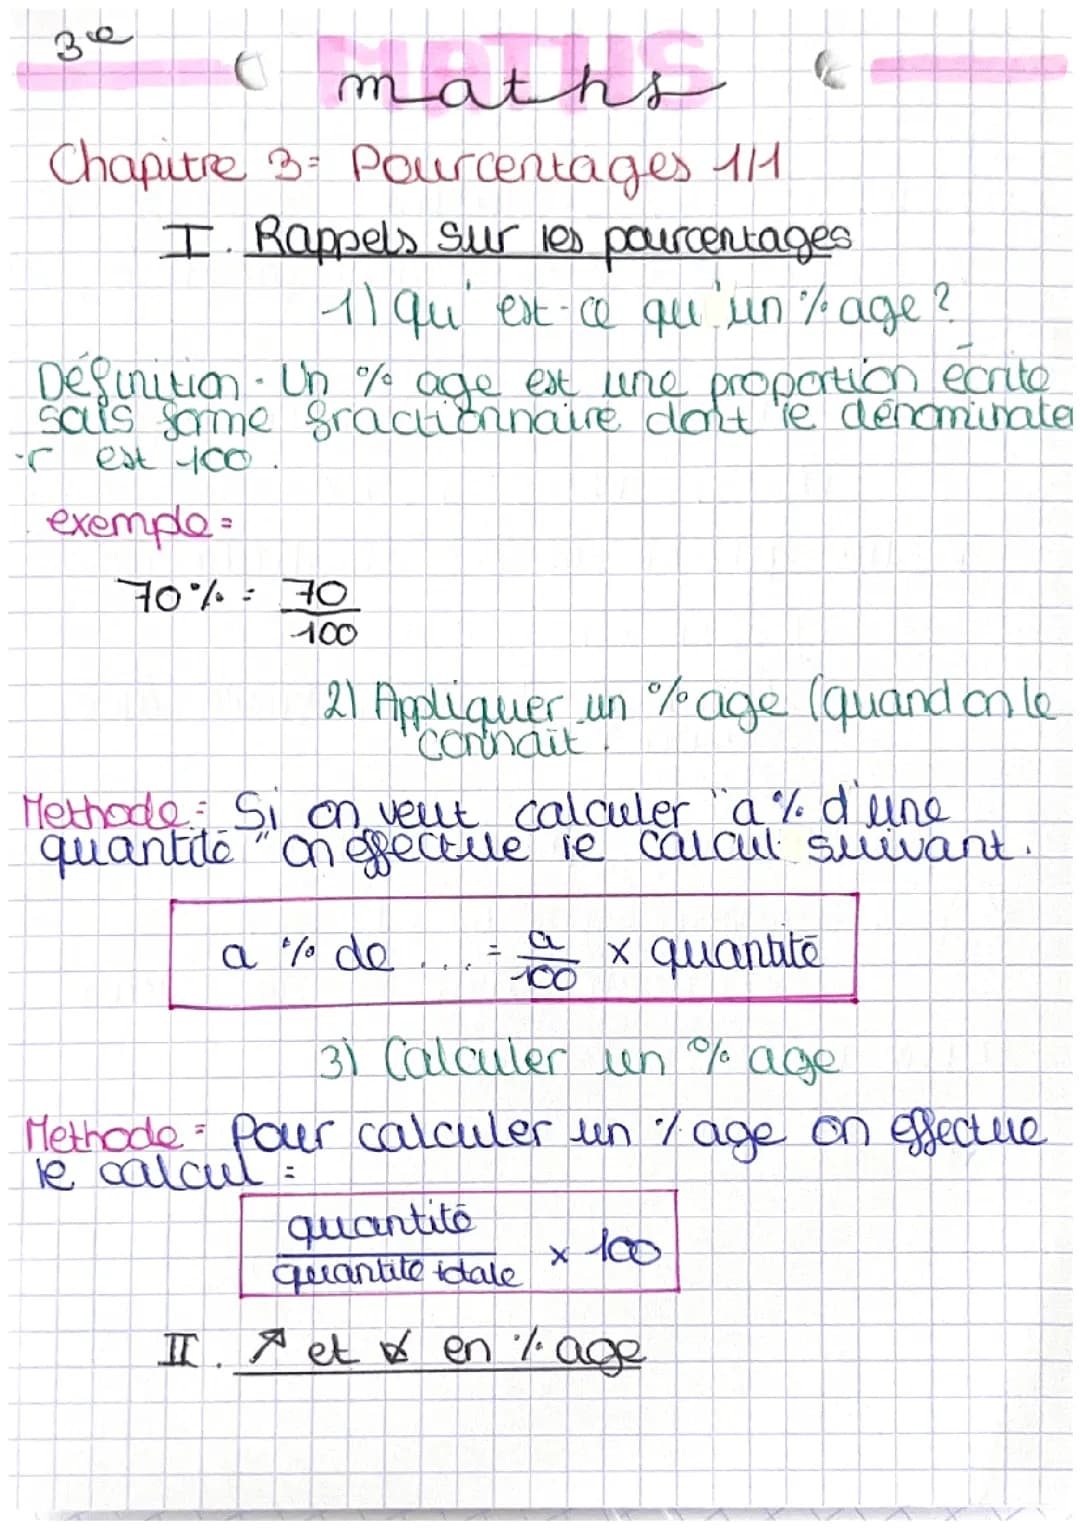 3e
MATHS
maths
Chapitre 3= Pourcentages 1/1
I. Rappels sur les pourcentages
1) qu'est-ce qu'un % age ?
Définition - Un % age est une proportion écrite
sous forme fractionnaire dont le dénominate
-r est 100.
exemple =
70% = 70/100
2) Appliquer un % age (quand on le
connait.
Methode = Si on veut calculer "a % d'une
quantité" on effectue le calcul suivant.
a % de ... = a/100 x quantité
3) Calculer un % age
Methode = Pour calculer un % age on effectue
le calcul =
quantité/quantité totale x 100
II. ↗ et ↘ en % age